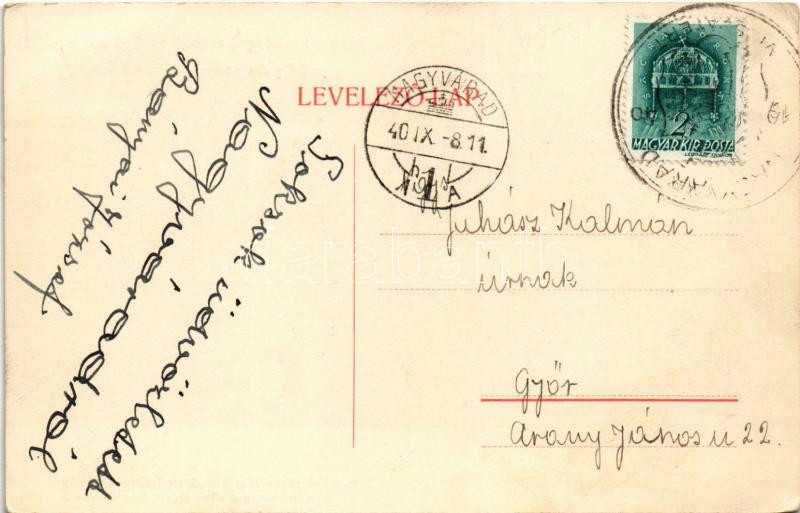 LEVELEZŐ-LAP
NAGYVÁRAD
40 IX. -8. 11.
1 A
2
MAGYAR KIR. POSTA
NAGYVÁRAD
Sok
üdvözlettel
Nagyváradról
Bányai József
Juhász Kálmán
úrnak
Győr
Arany János u 22.
darabanth